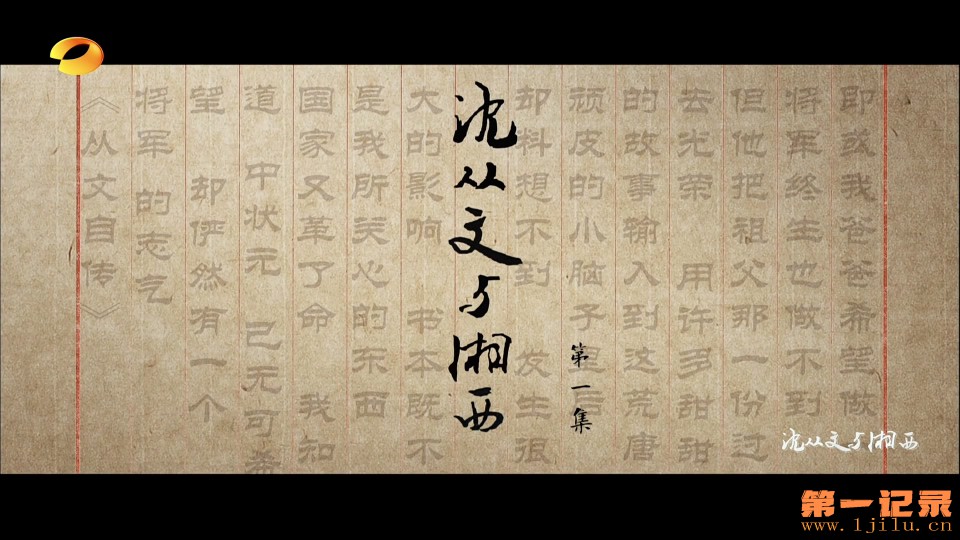 沈从文与湘西
第一集
即或我爸爸希望做
将军终生也做不到
但他把祖父那一份过
去光荣 用许多甜甜
的故事输入到这荒唐
顽皮的小脑子里后
却料想不到 发生很
大的影响 书本既不
是我所关心的东西
国家又革了命 我知
道 中状元 已无可希
望 却俨然有一个
将军 的志气
《从文自传》
沈从文与湘西
第一记录
www.1jilu.cn